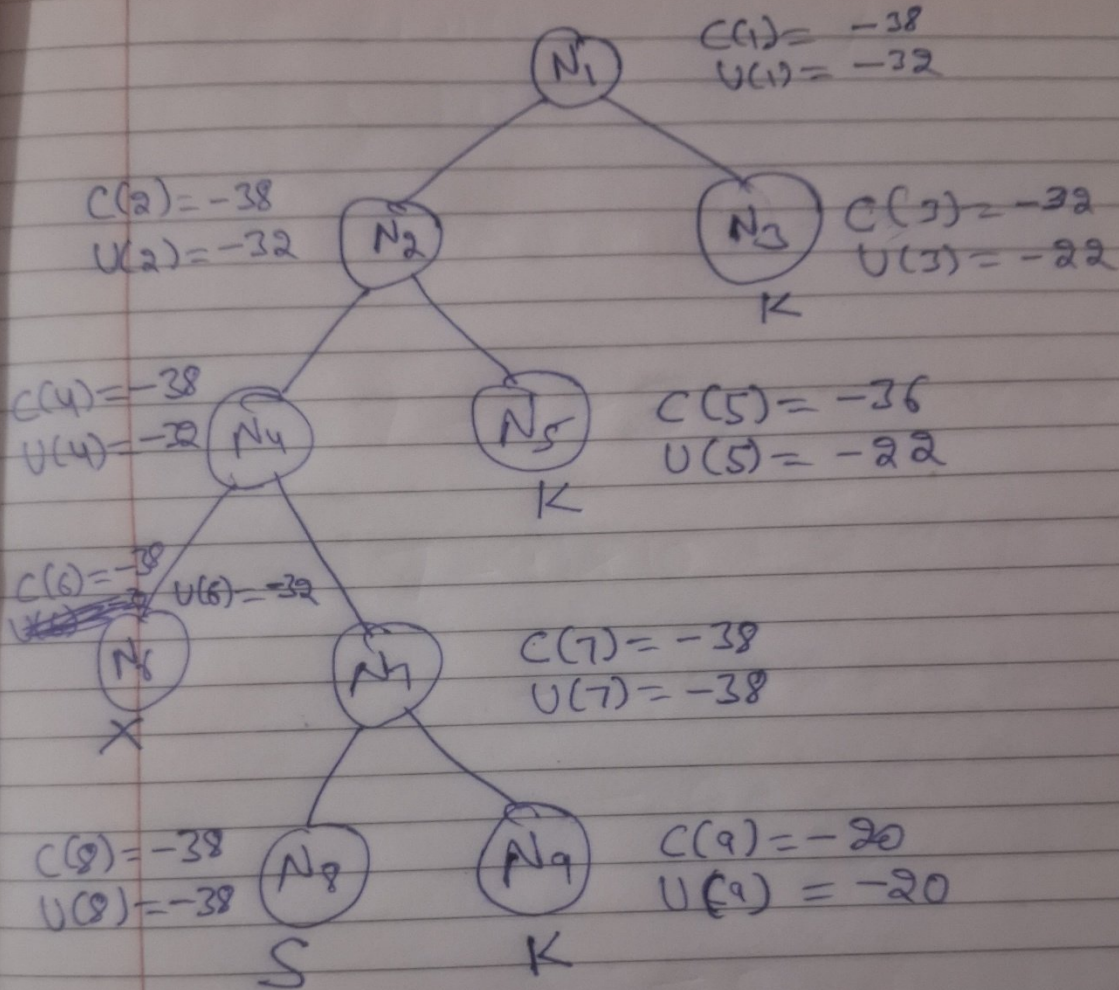 N1
C(1)= -38
U(1)= -32
C(2)= -38
U(2)= -32
N2
N3
C(3)= -32
U(3)= -22
K
C(4)= -38
U(4)= -32
N4
N5
C(5)= -36
U(5)= -22
K
C(6)= -38
U(6)= -32
N6
X
N7
C(7)= -38
U(7)= -38
C(8)= -38
U(8)= -38
N8
S
N9
K
C(9)= -20
U(9) = -20